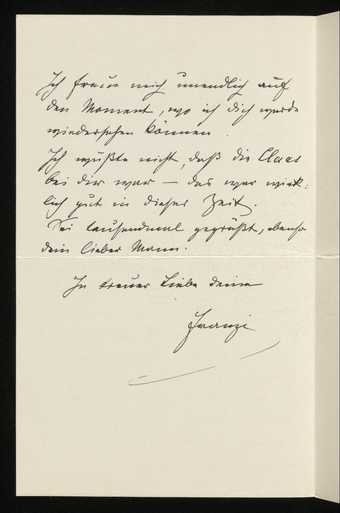 Ich freue mich unendlich auf
den Moment, wo ich dich werde
wiedersehen können.
Ich wußte nicht, daß die Claer
bei dir war – das war wirk-
lich gut in dieser Zeit.
Sei tausendmal gegrüßt, ebenso
dein lieber Mann.
In treuer Liebe deine
Franzi